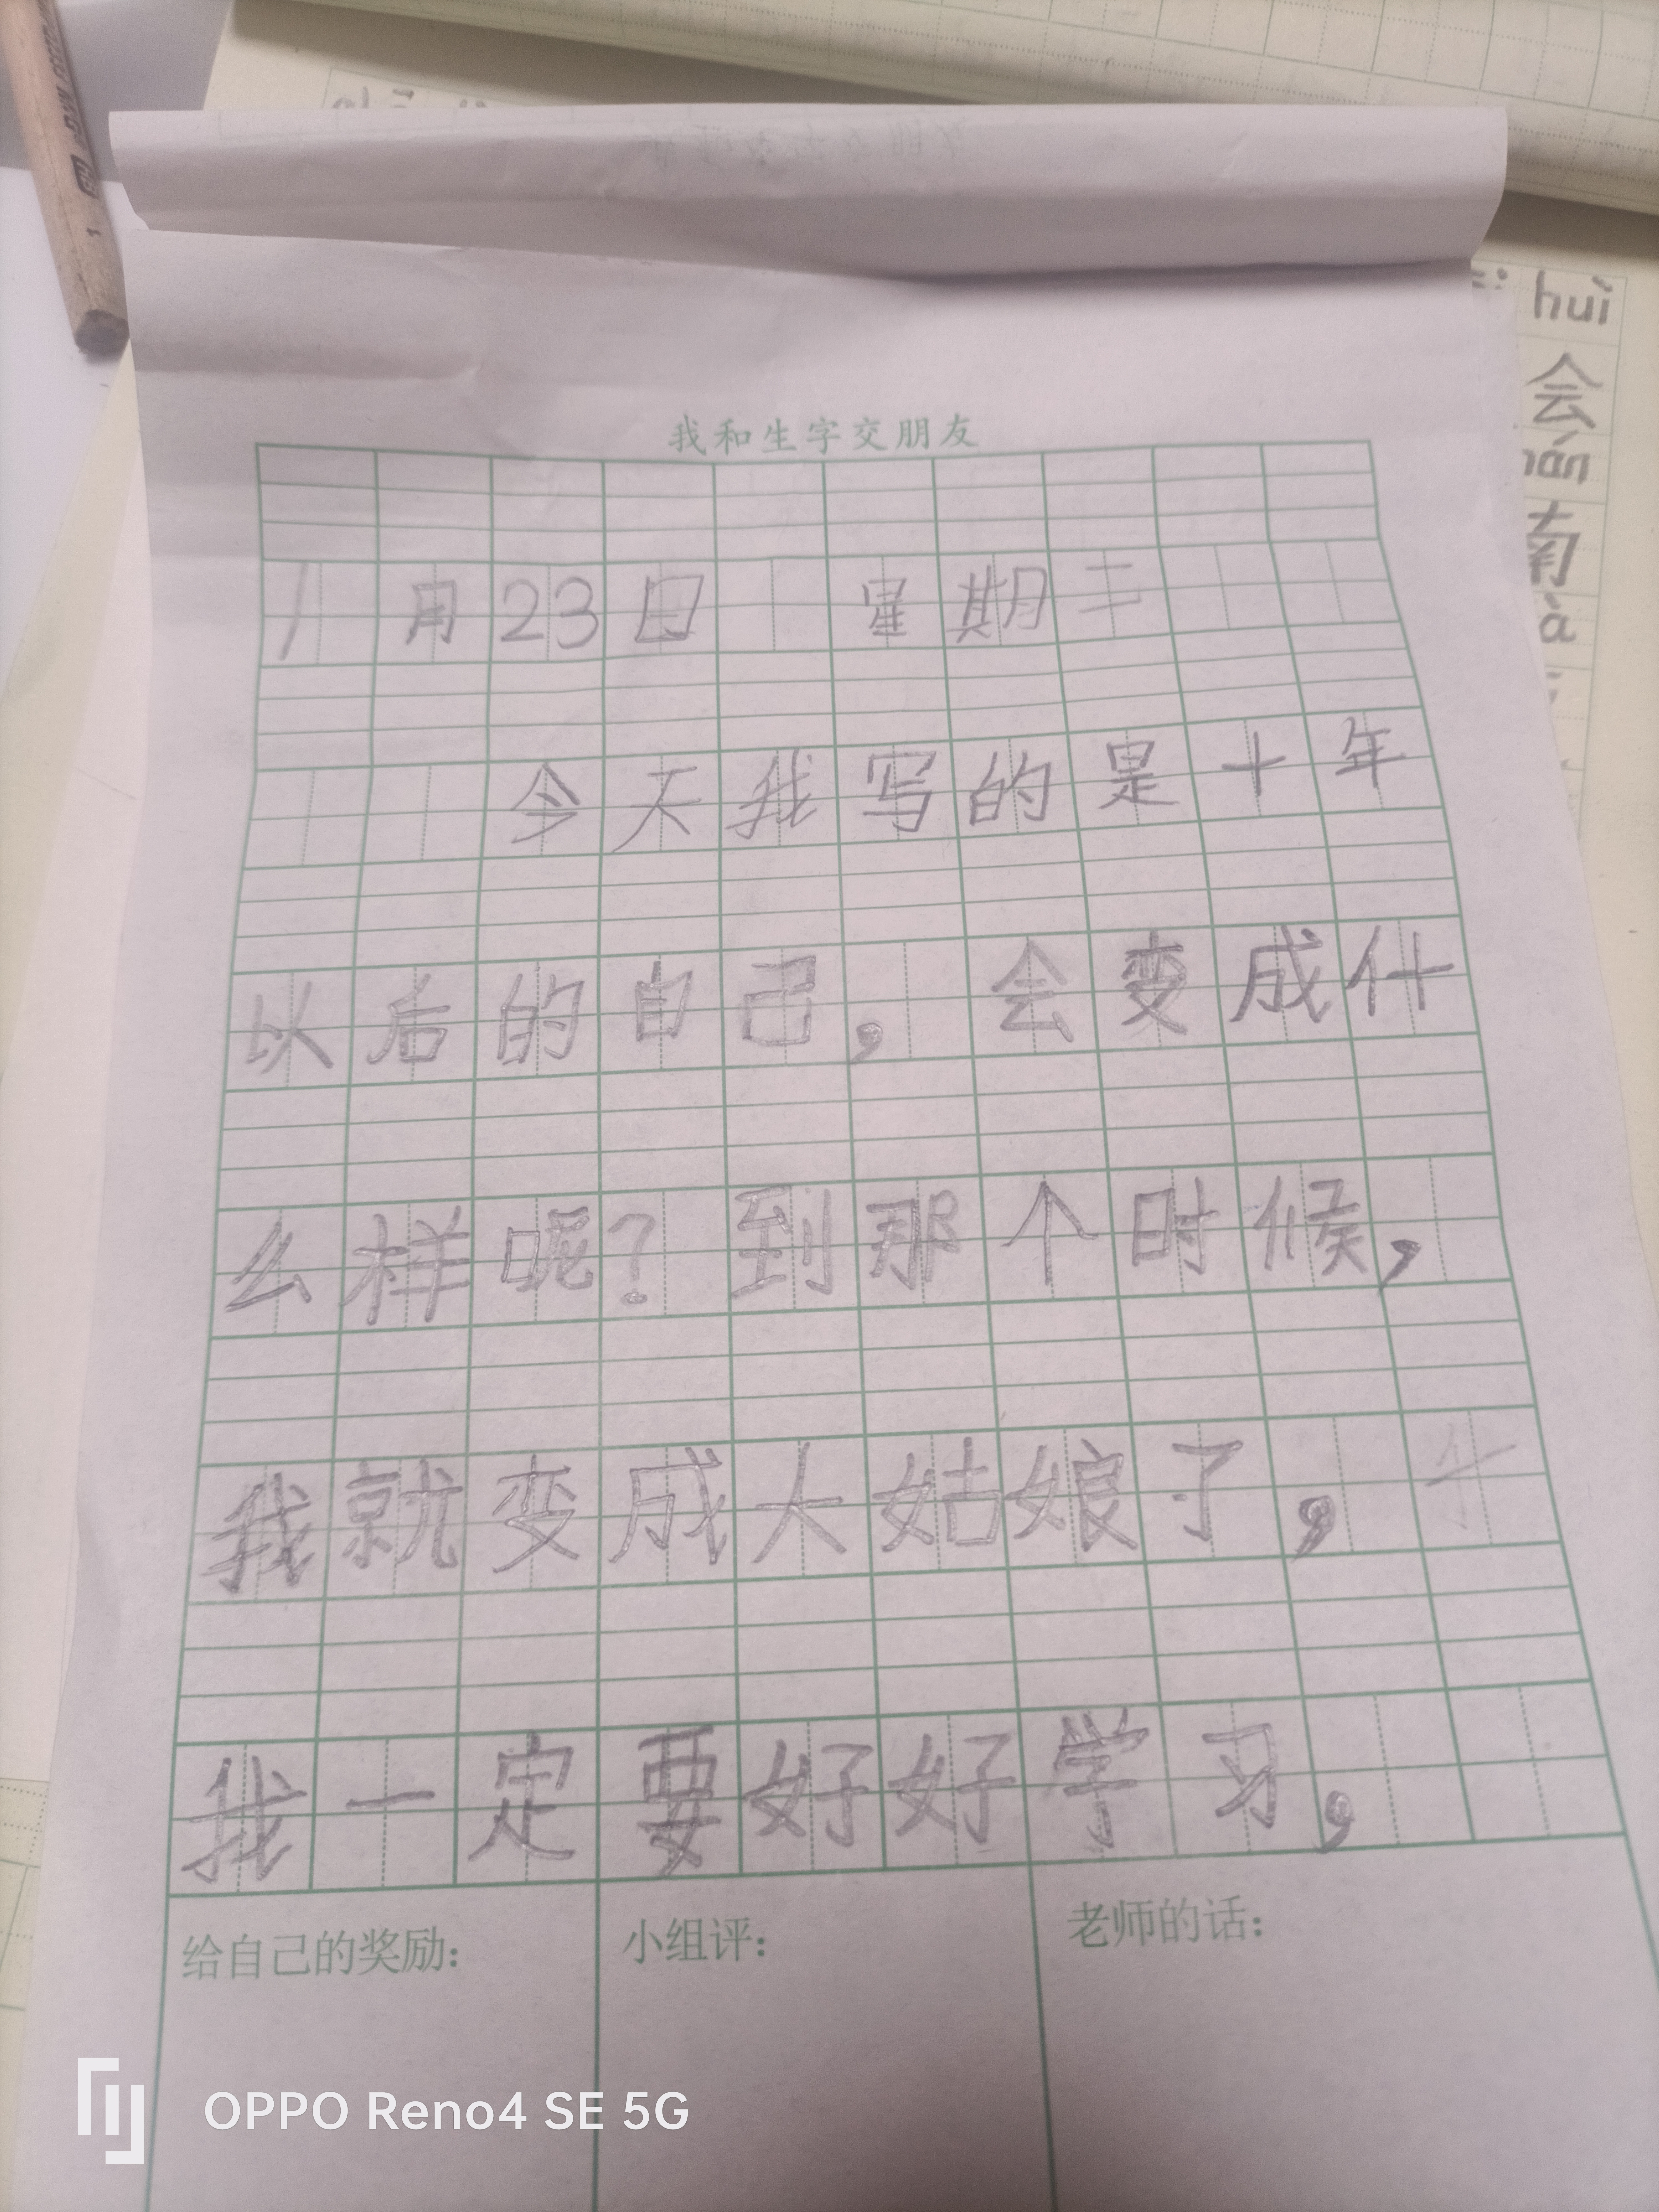 我和生字交朋友
1月23日 星期二
今天我写的是十年
以后的自己，会变成什
么样呢？到那个时候，
我就变成大姑娘了，
我一定要好好学习，
给自己的奖励： 小组评： 老师的话：
huì
会
南
OPPO Reno4 SE 5G